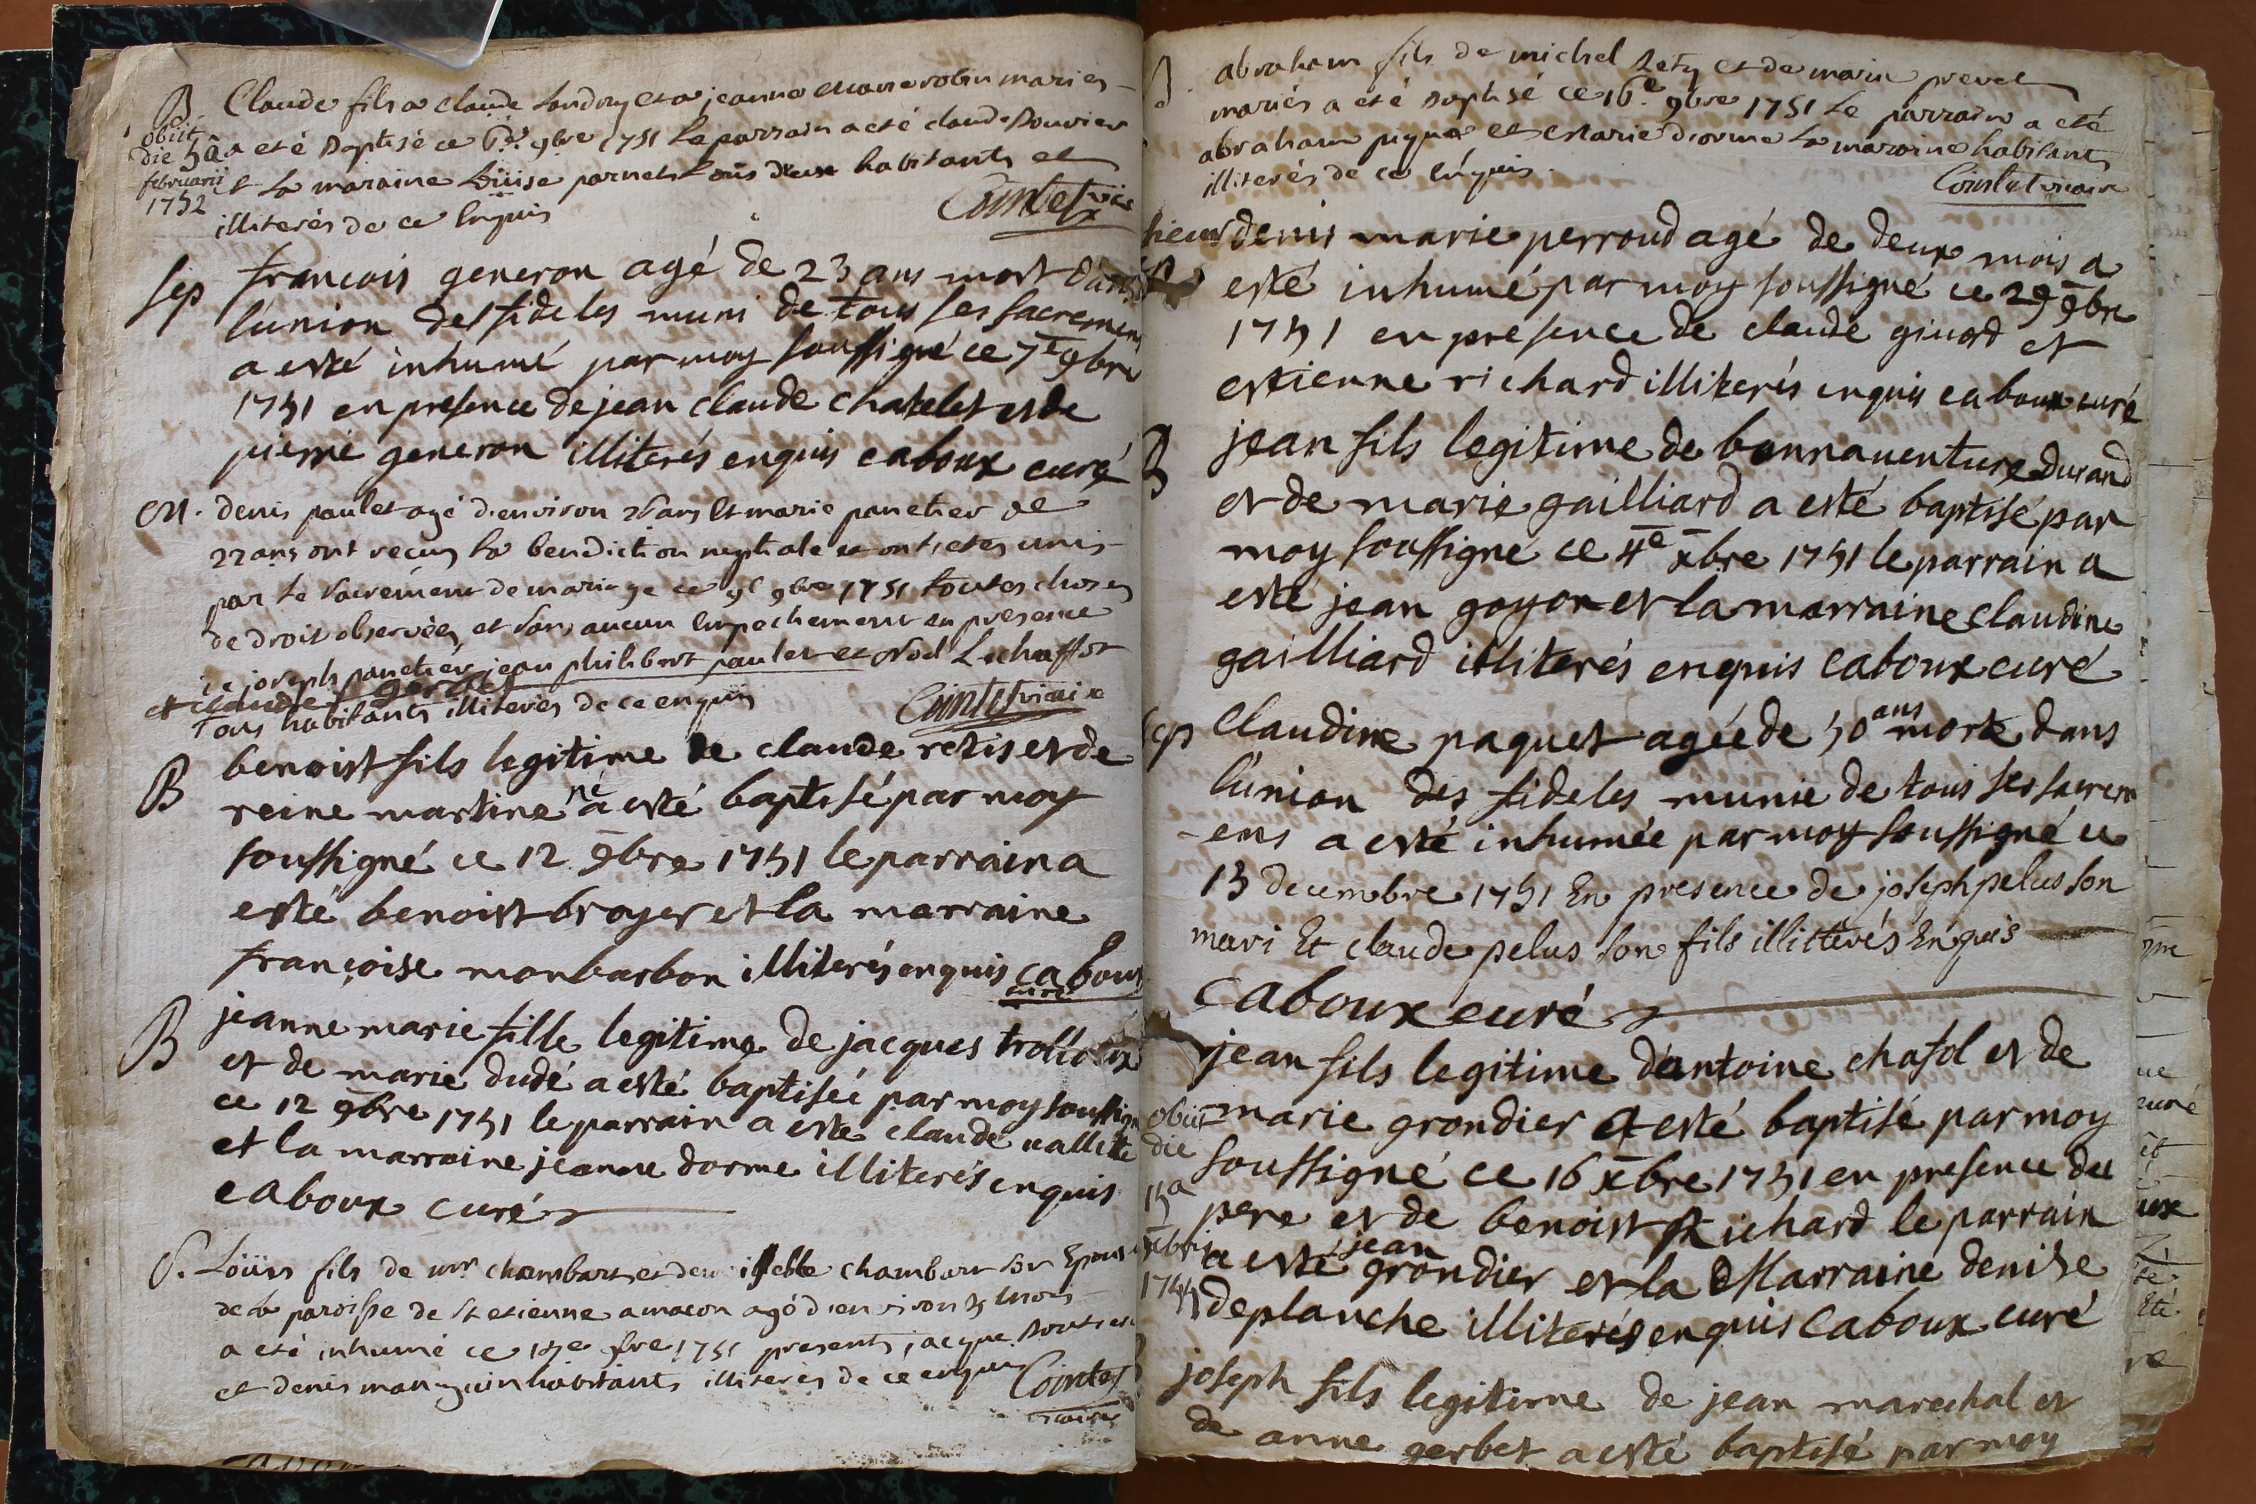 B Claude fils a claude Landry et a jeanne marie robin mariés
obiit
die 5a
februarii
1752
a eté Baptisé ce 6e 9bre 1751 Le parrain a eté claude Bouvier
et La maraine Loüise parnet tous deux habitants et
illiterés de ce Enquis Cointet vic
Sep francois generon agé de 23 ans mort dans
l'union des fideles muni de tous ses sacremens
a esté inhumé par moy soussigné ce 7e 9bre
1751 en presence de jean claude chatelet et de
pierre generon illiterés enquis caboux curé
M. denis paulet agé d'environ ans et marie panetier de
22 ans ont reçus La benediction nuptiale et ont etes unis
par Le sacrement de mariage ce 9e 9bre 1751 toutes choses
de droit observées et sans aucun Empechement en presence
de joseph panetier jean philibert paulet et Noel Luchaffot
et claude gerbet
Tous habitants illiterés de ce enquis Cointet vicaire
B benoist fils legitime de claude retis et de
reine martiné né a esté baptisé par moy
soussigné ce 12 9bre 1751 le parrain a
esté benoist broyer et la marraine
françoise monbarbon illiterés enquis caboux
curé
B jeanne marie fille legitime de jacques
et de marie dudé a esté baptisée par moy soussigné
ce 12 9bre 1751 le parrain a esté claude vallete
et la marraine jeanne dorme illiterés enquis
caboux curé
S. Loüis fils de mr chambart et de chambart son Epouse
de la paroisse de St etienne a macon agé d'environ mois
a eté inhumé ce 15e 9bre 1751 presents jacque
et denis manguin habitants illiterés de ce enquis Cointet
vicaire
B. abraham fils de michel Rety et de marie prevet
mariés a eté Baptisé ce 16e 9bre 1751 Le parrain a eté
abraham piquet et Marie diorme La maraine habitants
illiterés de ce Enquis.
Cointet vicaire
denis marie perroud agé de deux mois a
esté inhumé par moy soussigné ce 29 9bre
1751 en presence de claude ginord et
estienne richard illiterés enquis caboux curé
B jean fils legitime de bonnaventure Durand
et de marie gailliard a esté baptisé par
moy soussigné ce 4e xbre 1751 le parrain a
esté jean goyon et la marraine claudine
gailliard illiterés enquis caboux curé
Sep Claudine paquet agée de 50 ans morte dans
l'union des fideles munie de tous ses sacrem
-ens a esté inhumée par moy soussigné ce
15 decembre 1751 En presence de joseph pelus son
mari Et claude pelus son fils illitterés Enquis
caboux curé
jean fils legitime d'antoine chasol et de
obiit
die
15a
xbris
1751
marie grondier a esté baptisé par moy
soussigné ce 16 xbre 1751 en presence du
pere et de benoist Richard le parrain
a esté jean grondier et la Marraine denise
deplanche illiterés enquis caboux curé
joseph fils legitime de jean marechal et
de anne gerbet a esté baptisé par moy